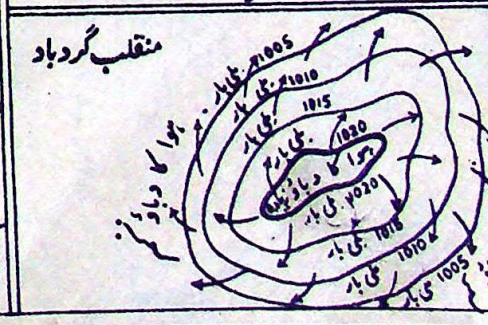 منقلب گردباد
1005 ملی بار
1010 ملی بار
1015 ملی بار
1020 ملی بار
ہوا کا دباؤ
ہوا کا دباؤ
ملی بار
1015 ملی بار
1010 ملی بار
1005 ملی بار